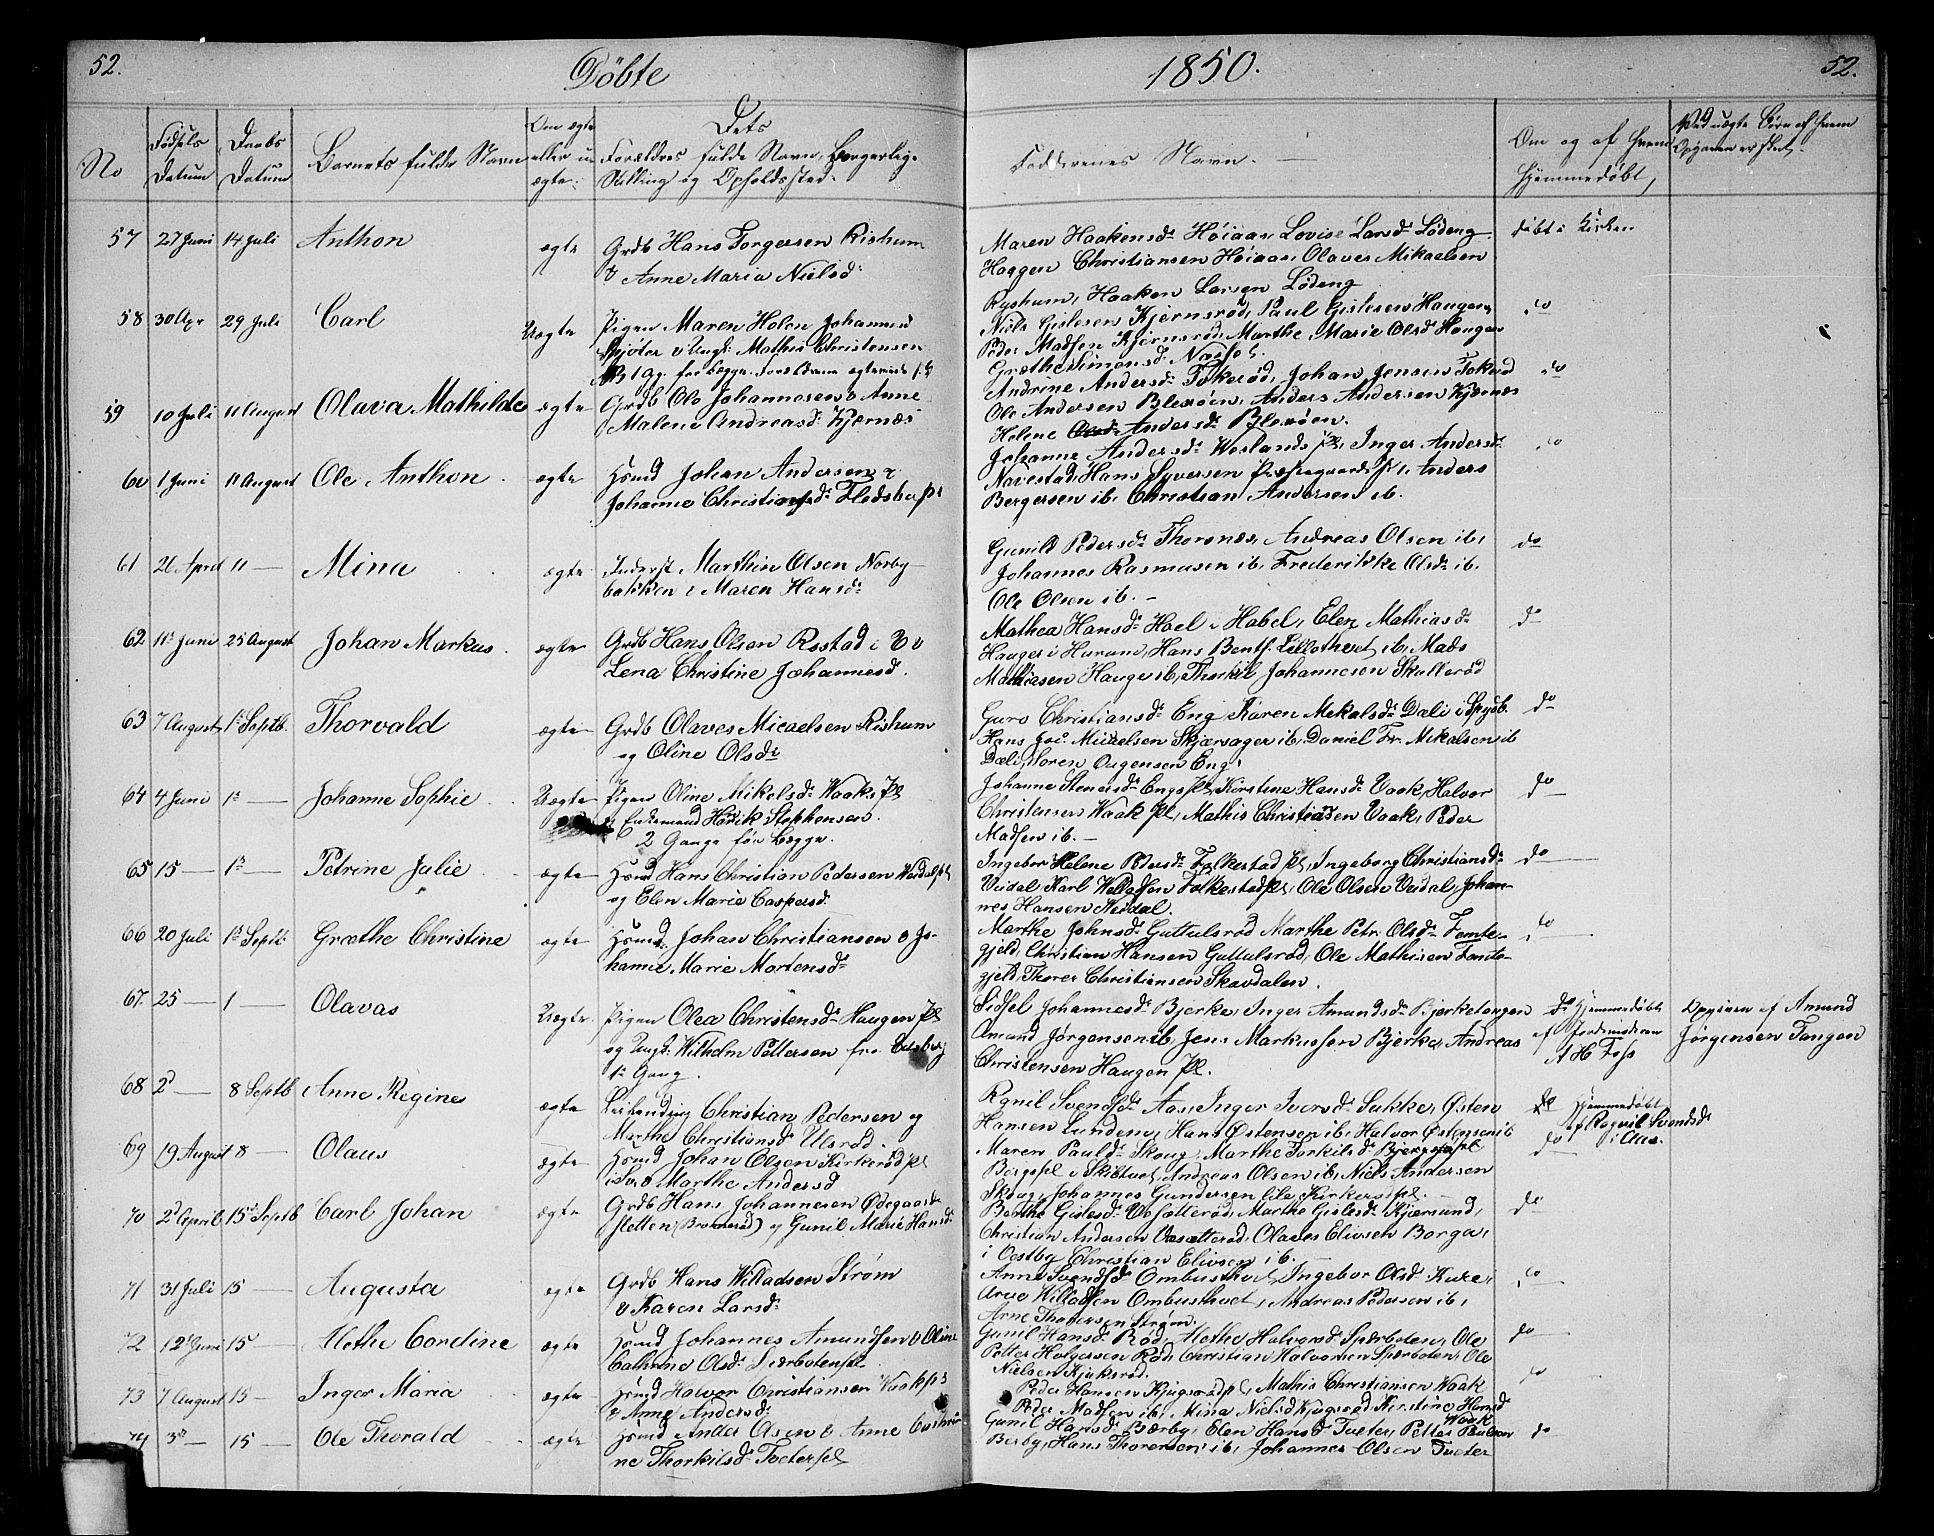 52.
Döbte
1850.
52.
No
Fødsels Datum
Daabs Datum
Barnets fulde Navn
Om ægte eller uægte.
Dets Forældres fulde Navn, Borgerlige Stilling og Opholdssted.
Faddernes Navn.
Om og af hvem hjemmedøbt,
Ved uægte Börn af hvem Opgaven er skeet.
57 27 Juni 14 Juli Anthon ægte Grdb Hans Torgersen Rishum
& Anne Maria Nielsd:
Maren Haakensd: Höiaas, Lovise Larsd: Lødeng
Haagen Christiansen Höiaas, Olaves Mikaelsen
Ryshum, Haaken Larsen Lödeng
döbt i Kirken
58 30 Apr 29 Juli Carl Uægte Pigen Maren Helen Johannesd
Skjöter & Ungk: Mathis Christensen
Niels Gislesen Kjernsröd, Paul Gislesen Haugen,
Peder Madsen Kjernsröd, Marthe Marie Olsd: Haugen
Grethe Simonsd:
do
59 10 Juli 11 August Olava Mathilde ægte Grdb Ole Johannesen & Anne
Malene Andreasd: Kjærnæs
Andrine Andersd: Tokeröd, Johan Jensen Tokeröd
Ole Andersen Blexöen, Anders Andersen Kjærnes
Helene Andersd: Blexöen.
do
60 1 Juni 11 August Ole Anthon ægte Huusmd Johan Andersen &
Johanne Christiansd:
Johanne Andersd: Weslands pl, Inger Andersd:
Navestad, Hans Syversen Præstegaards pl, Anders
Bergersen ib, Christian Andersen ib.
do
61 21 April 11 — Mina ægte Inderst Marthin Olsen Norby-
bakken & Maren Hansd:
Gunild Pedersd: Thorsnæs, Andreas Olsen ib,
Johannes Rasmusen ib, Frederikke Olsd: ib.
Ole Olsen ib. —
do
62 11 Juni 25 August Johan Markus ægte Grdb Hans Olsen Rostad i
Lena Christine Johannesd.
Mathea Hansd: Hoel i Habel, Elen Mathiasd:
Hauger i Hurum, Hans Bentf. Lillothvet ib, Mads
Mathiasen Hauger ib, Thorkil Johannesen Skulleröd
do
63 7 August 1 Septb. Thorvald ægte Grdb Olaves Micaelsen Rishum
og Oline Olsd:
Guro Christiansd: Eng Karen Mekalsd: Dæli i Spydb.
Hans Jac: Micaelsen Skjærsager ib, Daniel Fr. Mikalsen ib
Dæli, Soren Ougensen Eng,
do
64 4 Juni 1 — Johanne Sophie Uægte Pigen Oline Mikelsd: Waaks Pl
& Enkemand Henrik Stephensen.
2 Gange för Begge.
Johanne Stenesd: Engs pl, Kirstine Hansd: Vaak, Halvor
Christensen Waak pl, Mathis Christiansen Vaak, Peder
Madsen ib. —
do
65 15 — 1 — Petrine Julie ægte Huusmd Hans Christian Pedersen Veidal pl
og Elen Marie Caspersd:
Ingebor Helene Pedersd: Folkestad pl, Ingeborg Christiansd:
Veidal Karl Willadsen Folkestad pl, Ole Olsen Veidal, Johan-
nes Hansen Veidal.
do
66 20 Juli 1 Septb: Græthe Christine ægte Huusmd: Johan Christiansen & Jo-
hanne Marie Mortensd:
Marthe Johnsd: Guttulsröd Marthe Petr. Olsd: Femte-
gjeld, Christian Hansen Guttulsröd, Ole Mathisen Femte-
gjeld, Thorer Christiansen Skovdalen.
do
67. 25 — 1 — Olavas Uægte Pigen Olea Christensd: Haugen pl
og Ungk: Wilhelm Pettersen fra Eidsberg
1 Gang.
Sidsel Johannesd: Bjerke, Inger Amundsd: Bjerketangen
Amund Jørgensen ib, Jens Markussen Bjerke, Andreas
Christensen Haugen Pl.
do Hjemmedöbt af Jordemoderen A H Foss
Opgiven af Amund Jörgensen Tangen
68 2 — 8 Septb Anne Regines ægte Leilending Christian Pedersen og
Marthe Christiansd: Ulsröd.
Rønil Svendsd: Aas, Inger Iversd: Sukke, Østen
Hansen Lundeng, Hans Østensen ib, Halvor Østensen ib
do Hjemmedöbt af Ragnil Svendsd: i Aas.
69 19 August 8 — Olaus ægte Huusmd Johan Olsen Kirkeröd pl
& Marthe Andersd
Maren Paulsd: Skoug, Marthe Torkilsd:
Bergs pl i Skibtvet, Andreas Olsen ib, Niels Andersen
Skoug, Johannes Gundersen Kirkeröd pl.
do
70 2 April 15 Septb Carl Johan ægte Grdb Hans Johannesen Ødegaard
Sletten og Gunil Marie Hansd:
Berthe Gislesd: Marthe Gislesd: Kjærsund,
Christian Andersen Olaves Elivsen Borge,
i Vestby Christian Elivsen ib. —
do
71 31 Juli 15 — Augusta ægte Grdb Hans Willadsen Strøm
& Karen Larsd:
Anne Svendsd: Ombusthvet, Ingebor Olsd: Kure,
Arve Willadsen Ombusthvet, Andreas Pedersen ib,
Arne Thoresen Strøm.
do
72 12 Juni 15 — Alethe Cordine ægte Huusmd Johannes Amundsen & Oline
Cathrine Olsd: Spærboten pl
Gunil Hansd: Röd, Alethe Halvorsd: Spærboten, Ole
Petter Holgersen Röd, Christian Halvorsen Spærboten, Ole
Nielsen Kjuksröd.
do
73 7 August 15 — Inger Maria ægte Huusmd Halvor Christiansen Waak pl
& Anne Andersd:
Peder Hansen Kjugsröd pl, Mathis Christiansen Waak
Peder Madsen ib, Mina Nielsd: Kjugsröd Kirstine Hansd
Waak
do
74 3 — 15 — Ole Thorald ægte Huusmd Ander Olsen & Anne
ne Thorkilsd: Tveter pl
Gunil Hansd: Bærby, Elen Hansd Tveter, Petter Paulsen
Berby, Hans Thoresen ib, Johannes Olsen Tveter
do